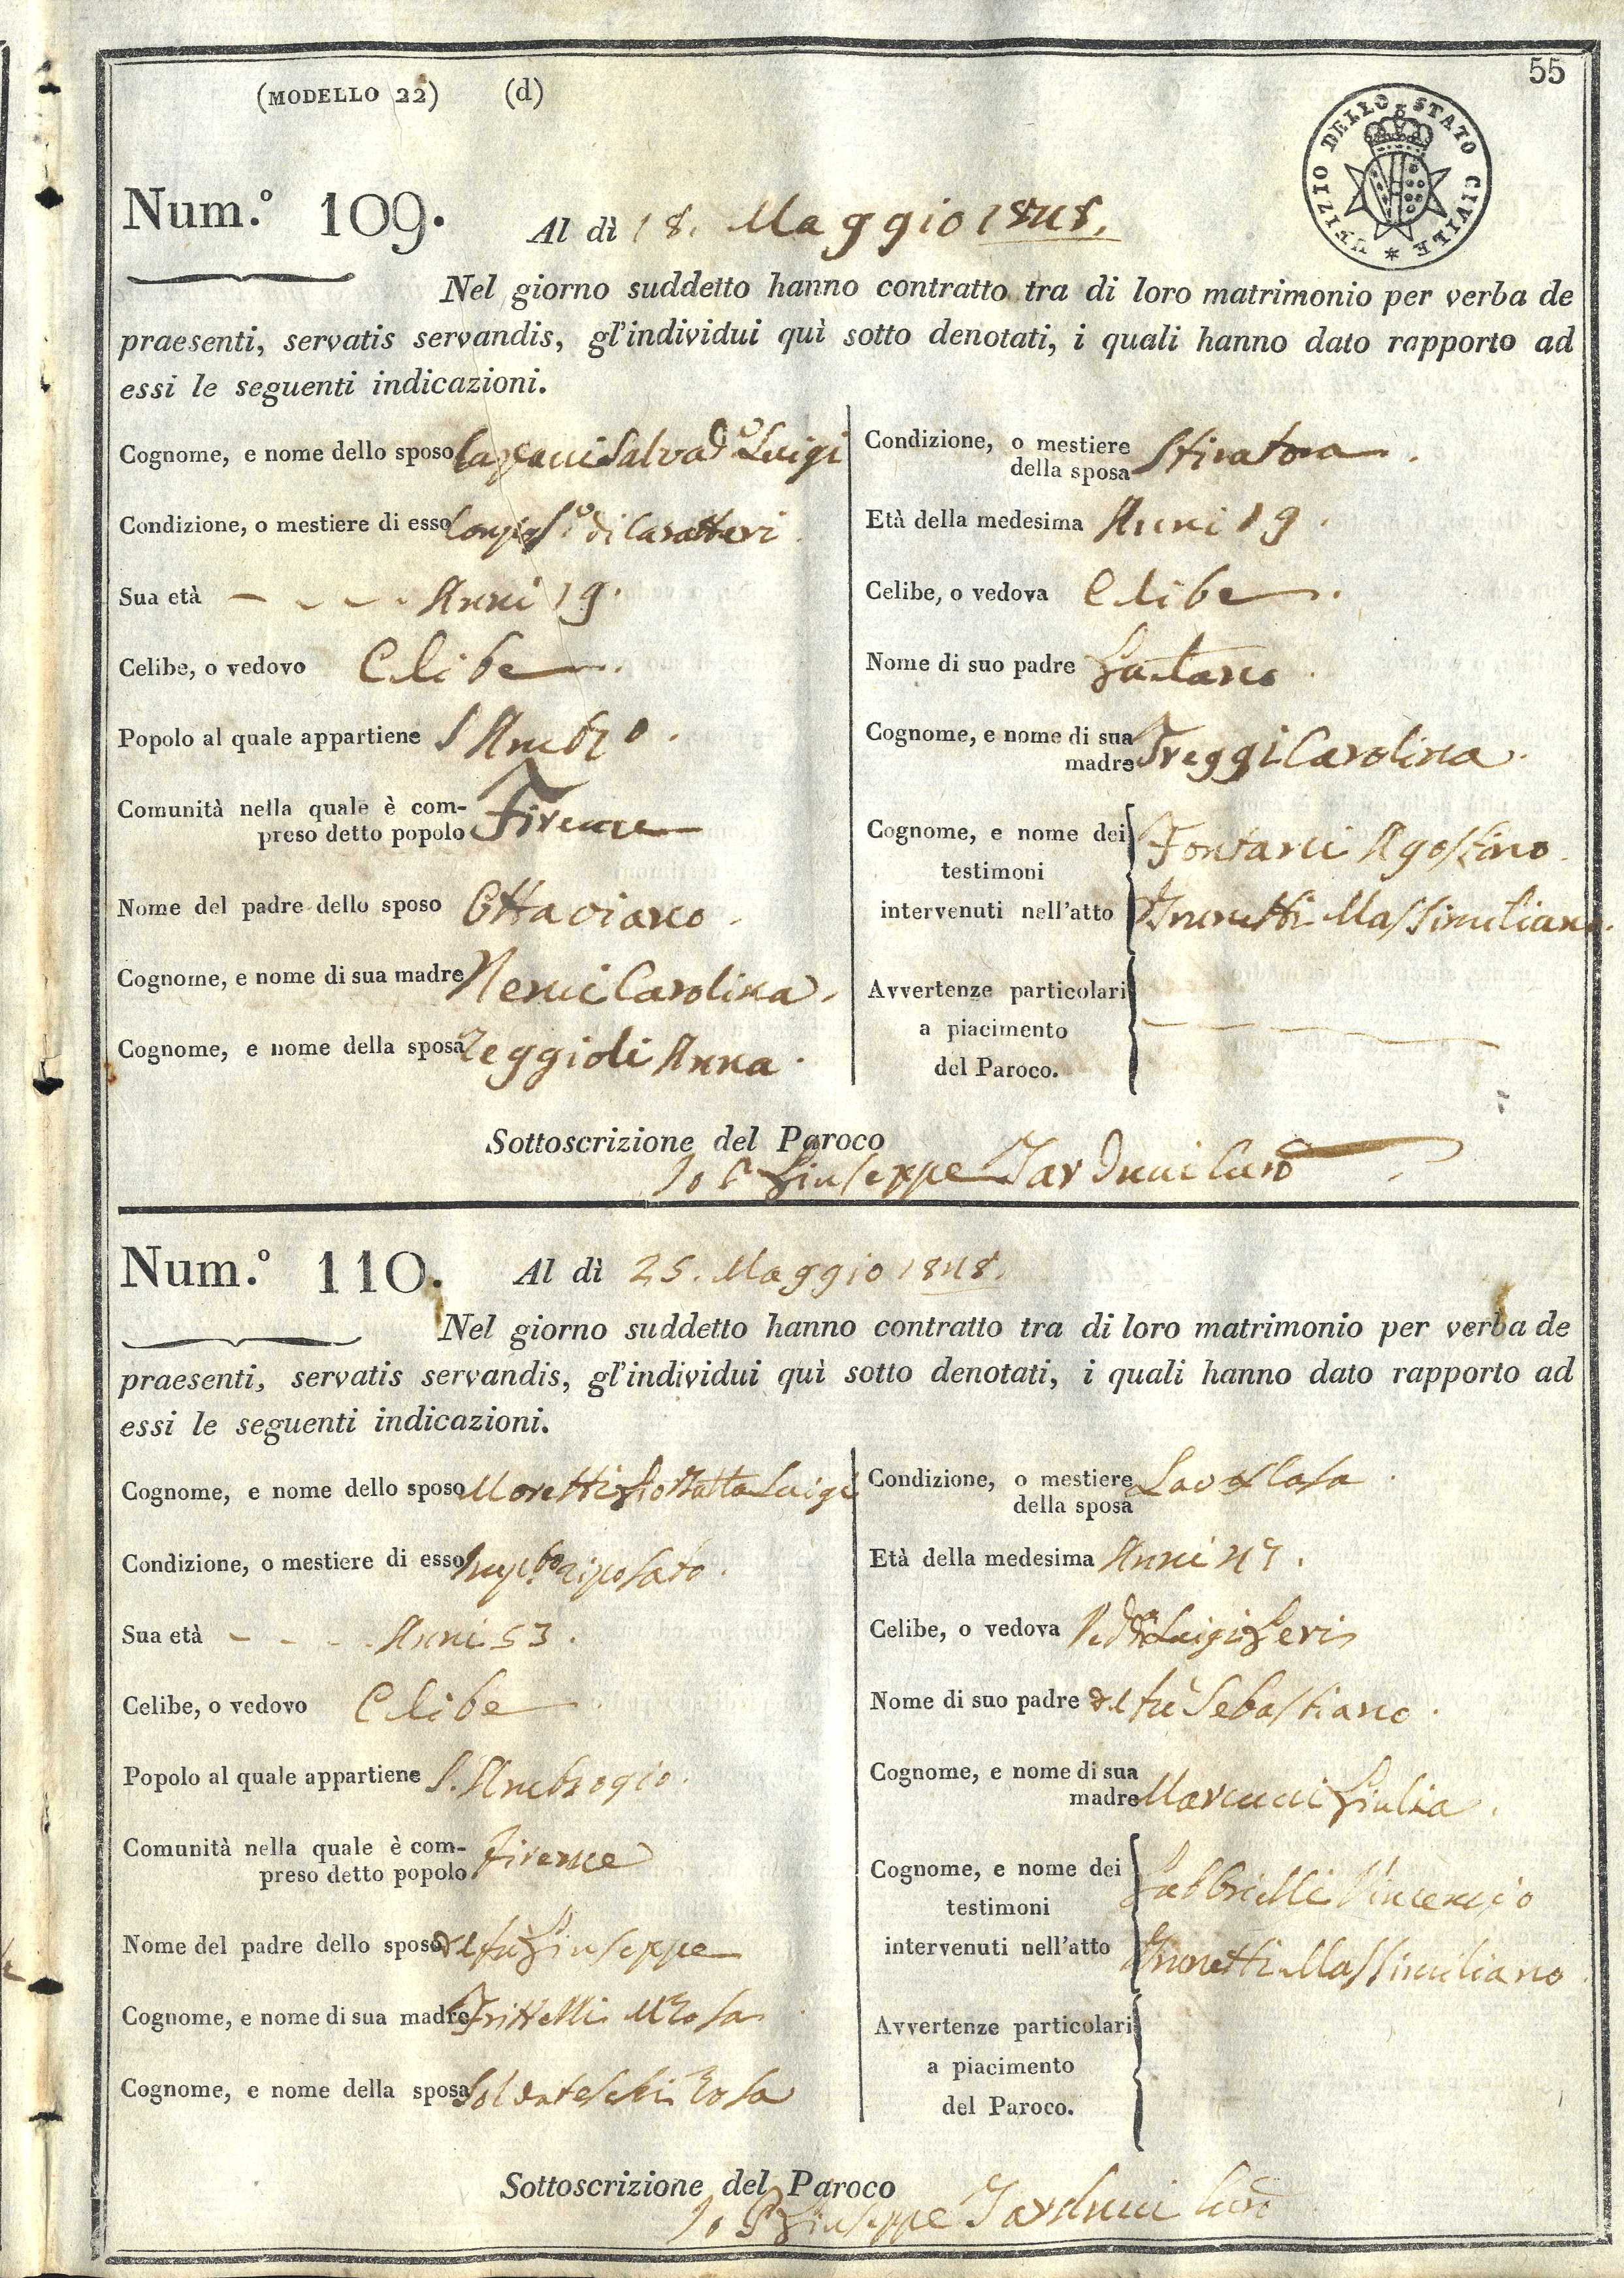 55
(MODELLO 22) (d)
UFIZIO DELLO STATO CIVILE *
Num.º 109. Al dì 18. Maggio 1848.
Nel giorno suddetto hanno contratto tra di loro matrimonio per verba de
praesenti, servatis servandis, gl'individui quì sotto denotati, i quali hanno dato rapporto ad
essi le seguenti indicazioni.
Cognome, e nome dello sposo Luigi
Condizione, o mestiere di esso di Caratteri
Sua età - - - - Anni 19.
Celibe, o vedovo Celibe
Popolo al quale appartiene S Ambro.
Comunità nella quale è com-
preso detto popolo Firenze
Nome del padre dello sposo Ottaviano.
Cognome, e nome di sua madre Nenci Carolina.
Cognome, e nome della sposa Reggioli Anna.
Condizione, o mestiere
della sposa Stiratora.
Età della medesima Anni 19.
Celibe, o vedova Celibe.
Nome di suo padre Gaetano
Cognome, e nome di sua
madre Treggi Carolina.
Cognome, e nome dei Fontani Agostino
testimoni
intervenuti nell'atto Brunetti Massimiliano.
Avvertenze particolari
a piacimento
del Paroco.
Sottoscrizione del Paroco
Io P Giuseppe Tarducci Curo
Num.º 110. Al dì 25. Maggio 1848.
Nel giorno suddetto hanno contratto tra di loro matrimonio per verba de
praesenti, servatis servandis, gl'individui quì sotto denotati, i quali hanno dato rapporto ad
essi le seguenti indicazioni.
Cognome, e nome dello sposo Moretti Gio Batta Luigi
Condizione, o mestiere di esso Impto riposato.
Sua età - - - - Anni 53.
Celibe, o vedovo Celibe
Popolo al quale appartiene S. Ambrogio.
Comunità nella quale è com-
preso detto popolo Firenze
Nome del padre dello sposo del fù Giuseppe
Cognome, e nome di sua madre Frittelli Ma Rosa
Cognome, e nome della sposa Soldateschi Rosa
Condizione, o mestiere
della sposa Casa
Età della medesima Anni
Celibe, o vedova Luigi Geri
Nome di suo padre del fù Sebastiano.
Cognome, e nome di sua
madre Marcucci Giulia.
Cognome, e nome dei Gabbrielli Vincenzio
testimoni
intervenuti nell'atto Brunetti Massimiliano
Avvertenze particolari
a piacimento
del Paroco.
Sottoscrizione del Paroco
Io P Giuseppe Tarducci Curo